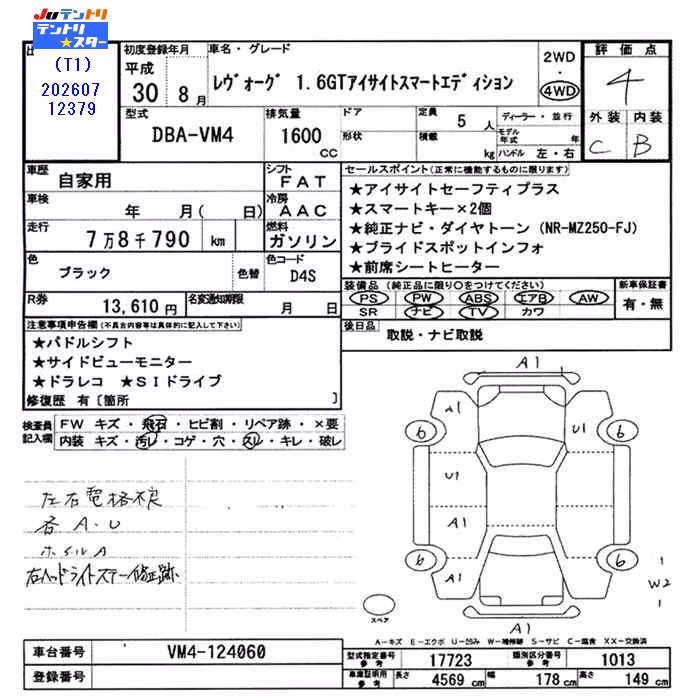 JUテントリ
テントリ
★スター
(T1)
202607
12379
初度登録年月
平成
30 8 月
車名・グレード
レヴォーグ 1.6GTアイサイトスマートエディション
2WD
・
4WD
評価点
4
型式
DBA-VM4
排気量
1600
CC
ドア
形状
定員
5 人
積載
kg
ディーラー・並行
モデル年式 年
ハンドル 左・右
外装 内装
C B
車歴
自家用
シフト
FAT
車検
年 月( 日)
冷房
AAC
走行
7万8千790 km
燃料
ガソリン
色
ブラック
色替
色コード
D4S
R券
13,610円
名変通知期限
月 日
セールスポイント(正常に機能するものに限ります)
★アイサイトセーフティプラス
★スマートキー×2個
★純正ナビ・ダイヤトーン (NR-MZ250-FJ)
★ブライドスポットインフォ
★前席シートヒーター
装備品 (純正品に限り〇をつけてください)
PS PW ABS エアB AW
SR ナビ TV カワ
新車保証書
有・無
後日品
取説・ナビ取説
注意事項申告欄(不具合内容等は具体的に記入して下さい)
★パドルシフト
★サイドビューモニター
★ドラレコ ★SIドライブ
修復歴 有〔箇所 〕
検査員
記入欄
FW キズ・飛石・ヒビ割・リペア跡・×要
内装 キズ・汚レ・コゲ・穴・スレ・キレ・破レ
左右電格不良
各A.U
ホイルA
右ヘッドライトステー修正跡
A1
A1
U1
6
6
U1
A1
6
6
A1
A1
1
W2
1
スペア
A-キズ E-エクボ U-凹み W-補修跡 S-サビ C-腐食 XX-交換済
車台番号
VM4-124060
登録番号
型式指定番号
参考
17723
類別区分番号
参考
1013
車庫証明用
参考
長さ
4569 cm
幅
178 cm
高さ
149 cm